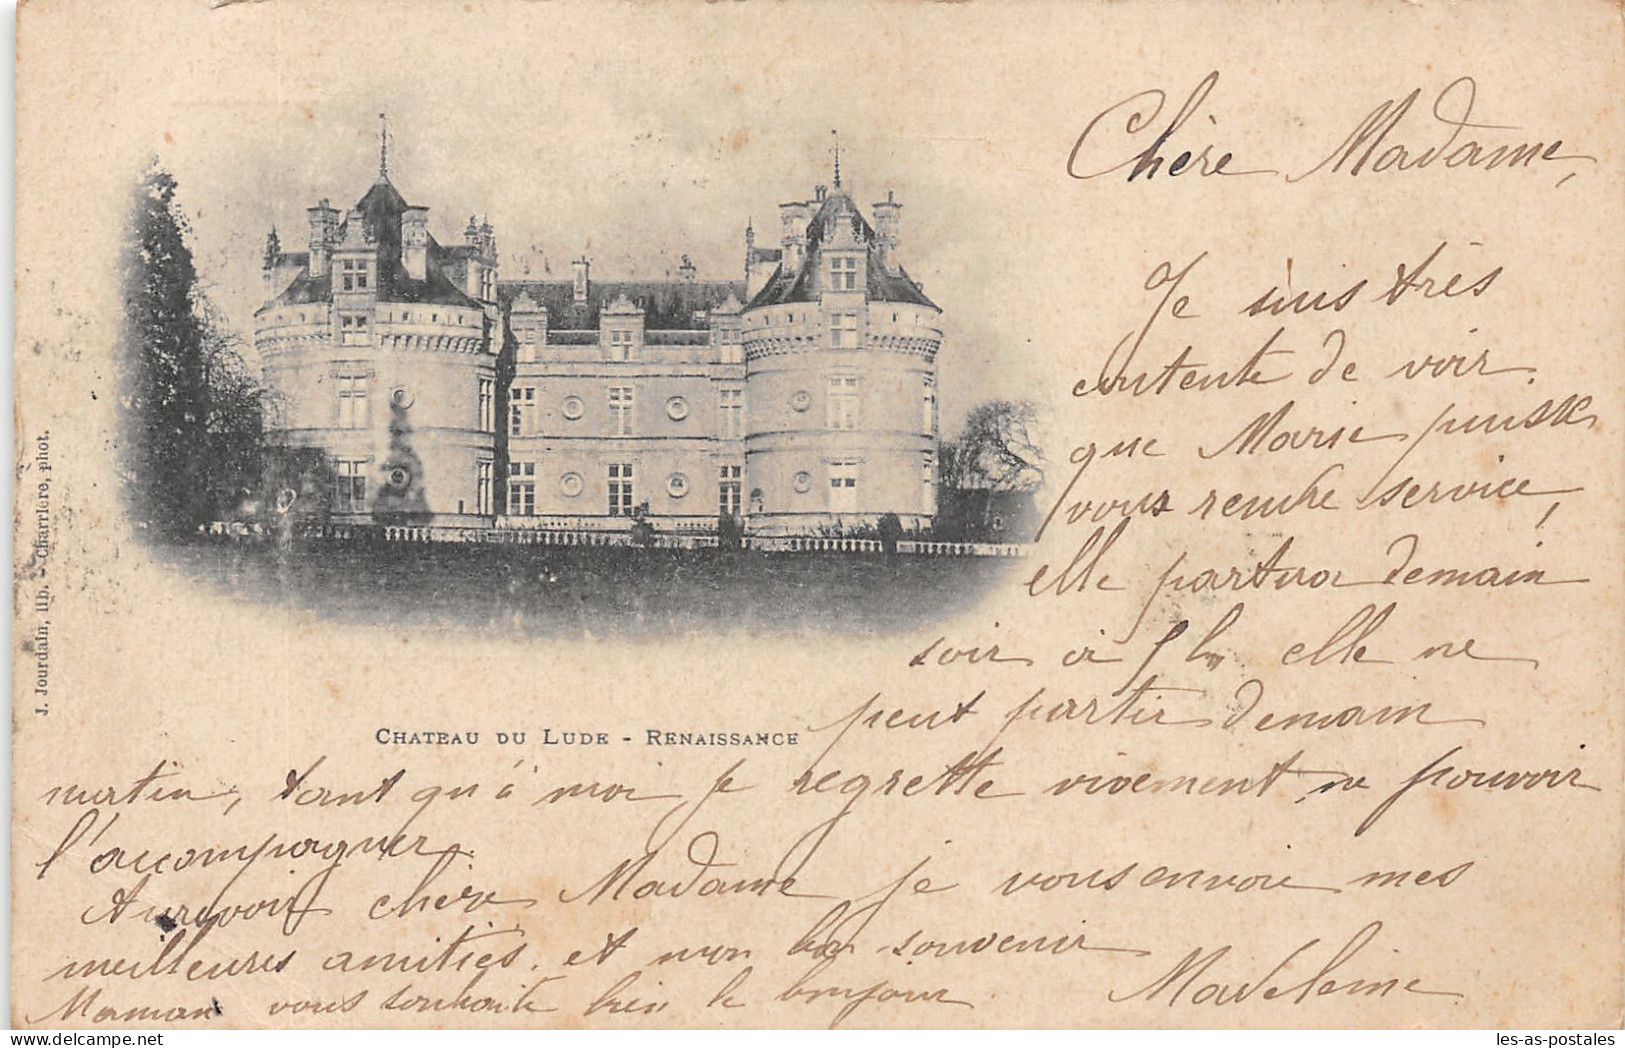 Chère Madame,
Je suis très
contente de voir
que Marie puisse
vous rendre service,
elle partira demain
soir à 5 h, elle ne
peut partir demain
CHATEAU DU LUDE - RENAISSANCE
matin, tant qu'à moi je regrette vivement ne pouvoir
l'accompagner.
Aurevoir chère Madame je vous envoie mes
meilleures amitiés. et mon bon souvenir
Madeleine
Maman vous souhaite bien le bonjour
J. Jourdain, lib. - Charrière, phot.
delcampe.net
les-as-postales